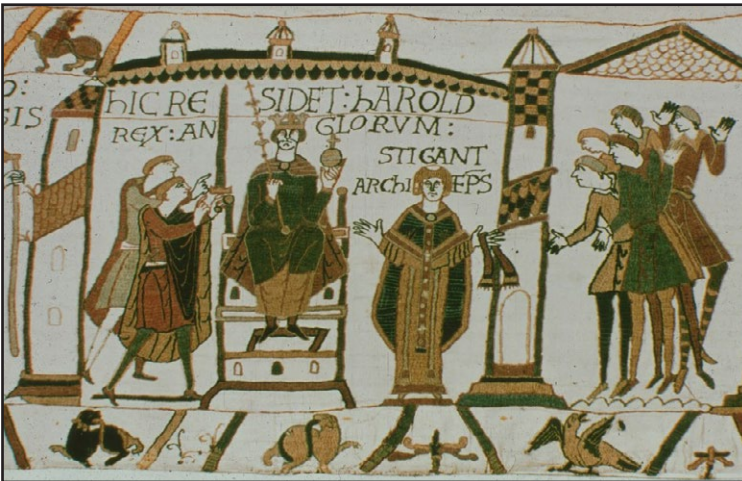 O:
GIS
HIC RE SIDET: HAROLD
REX: AN GLORVM:
STIGANT
ARCHI EPS